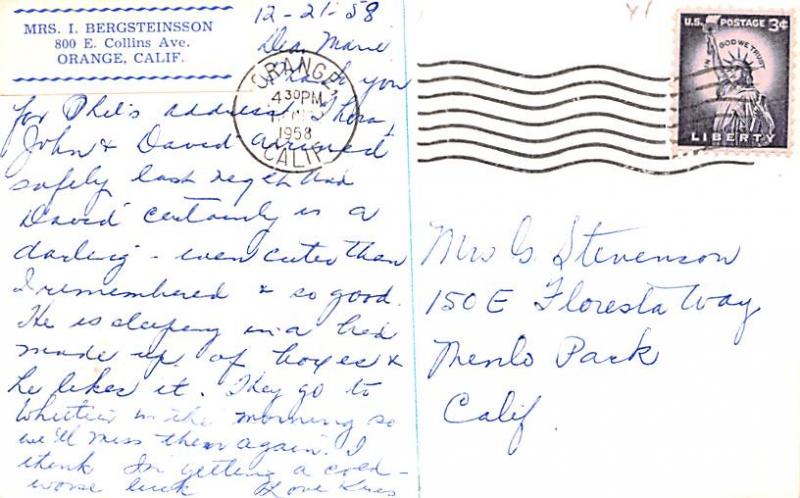 MRS. I. BERGSTEINSSON
800 E. Collins Ave.
ORANGE, CALIF.
12-21-58
Dear Marie
Thank you
for Phil's address. Thora,
John & David arrived
safely last night and
David certainly is a
darling - even cuter than
I remembered & so good.
He is sleeping in a bed
made up of boxes &
he likes it. They go to
Whittier in the morning so
we'll miss them again. I
think I'm getting a cold -
worse luck Love
ORANGE,
4 30 PM
1958
CALIF.
U.S. POSTAGE 3¢
IN GOD WE TRUST
LIBERTY
Mrs G. Stevenson
150 E Floresta Way
Menlo Park
Calif